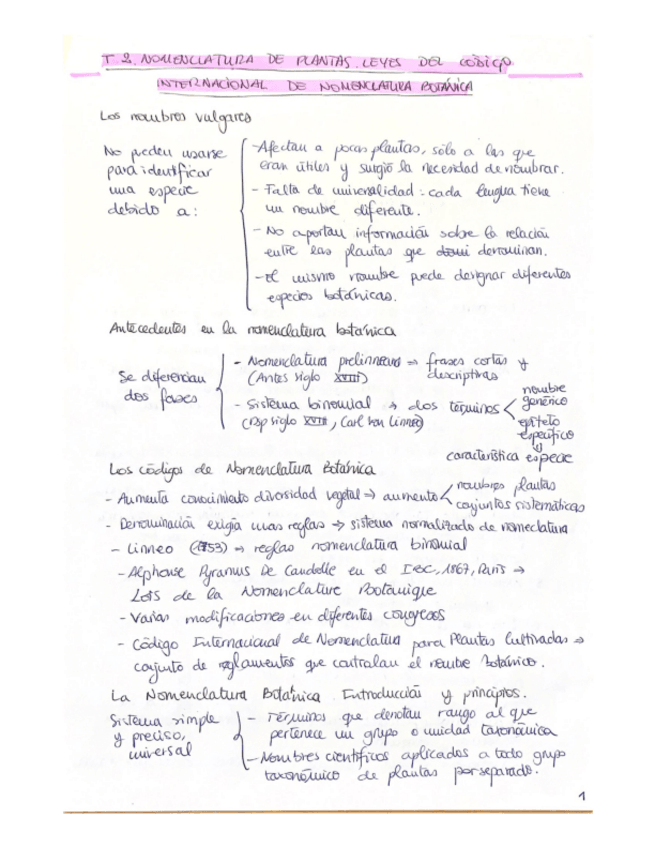 T 2. NOMENCLATURA DE PLANTAS. LEYES DEL CÓDIGO
INTERNACIONAL DE NOMENCLATURA BOTÁNICA
Los nombres vulgares
No pueden usarse
para identificar
una especie
debido a:
- Afectan a pocas plantas, sólo a las que
eran útiles y surgió la necesidad de nombrar.
- Falta de universalidad: cada lengua tiene
un nombre diferente.
- No aportan información sobre la relación
entre las plantas que denominan.
- El mismo nombre puede designar diferentes
especies botánicas.
Antecedentes en la nomenclatura botánica
Se diferencian
dos fases
- Nomenclatura prelinneana ⇒ frases cortas y
(Antes siglo XVIII) descriptivas
- Sistema binomial → dos términos < nombre
genérico
(Dsp siglo XVIII, Carl von Linneo) epíteto
específico
⇓
característica especie
Los códigos de Nomenclatura Botánica
- Aumenta conocimiento diversidad vegetal ⇒ aumento < nombres plantas
conjuntos sistemáticos
- Denominación exigía unas reglas → sistema normalizado de nomeclatura
- Linneo (1753) ⇒ reglas nomenclatura binomial
- Alphonse Pyramus De Candolle en el IBC, 1867, París →
Lois de la Nomenclature Bootanique
- Varias modificaciones en diferentes congresos
- Código Internacional de Nomenclatura para Plantas Cultivadas ⇒
conjunto de reglamentos que controlan el nombre botánico.
La Nomenclatura Botánica. Introducción y principios.
Sistema simple
y preciso,
universal
- Términos que denotan rango al que
pertenece un grupo o unidad taxonómica
- Nombres científicos aplicados a todo grupo
taxonómico de plantas por separado.
1